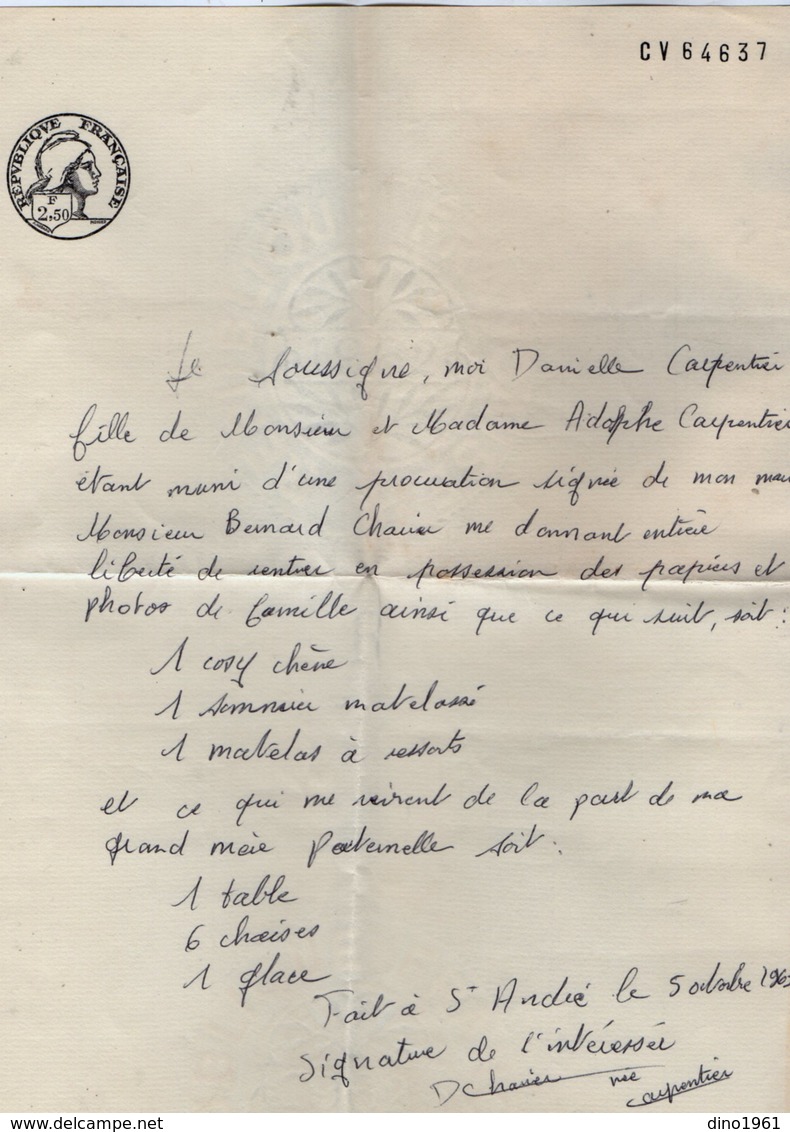 CV 64637
REPVBLIQVE FRANÇAISE
F
2,50
Je Soussigné, moi Danielle Carpentier
fille de Monsieur et Madame Adolphe Carpentier
étant muni d'une procuration signée de mon
Monsieur Bernard me donnant entière
liberté de rentrer en possession des papiers et
photos de famille ainsi que ce qui suit, soit:
1 cosy chêne
1 sommier matelassé
1 matelas à ressorts
et ce qui me de la part de ma
grand mère Paternelle soit:
1 table
6 chaises
1 glace
Fait à St André le 5 octobre
Signature de l'intéressée
D née
carpentier
dino1961